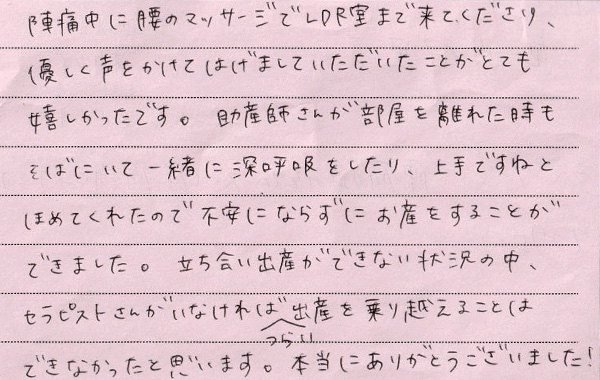 陣痛中に腰のマッサージでLDR室まで来てくださり、
優しく声をかけてはげましていただいたことがとても
嬉しかったです。助産師さんが部屋を離れた時も
そばにいて一緒に深呼吸をしたり、上手ですねと
ほめてくれたので不安にならずにお産をすることが
できました。立ち合い出産ができない状況の中、
セラピストさんがいなければ出産を乗り越えることは
つらい
できなかったと思います。本当にありがとうございました!